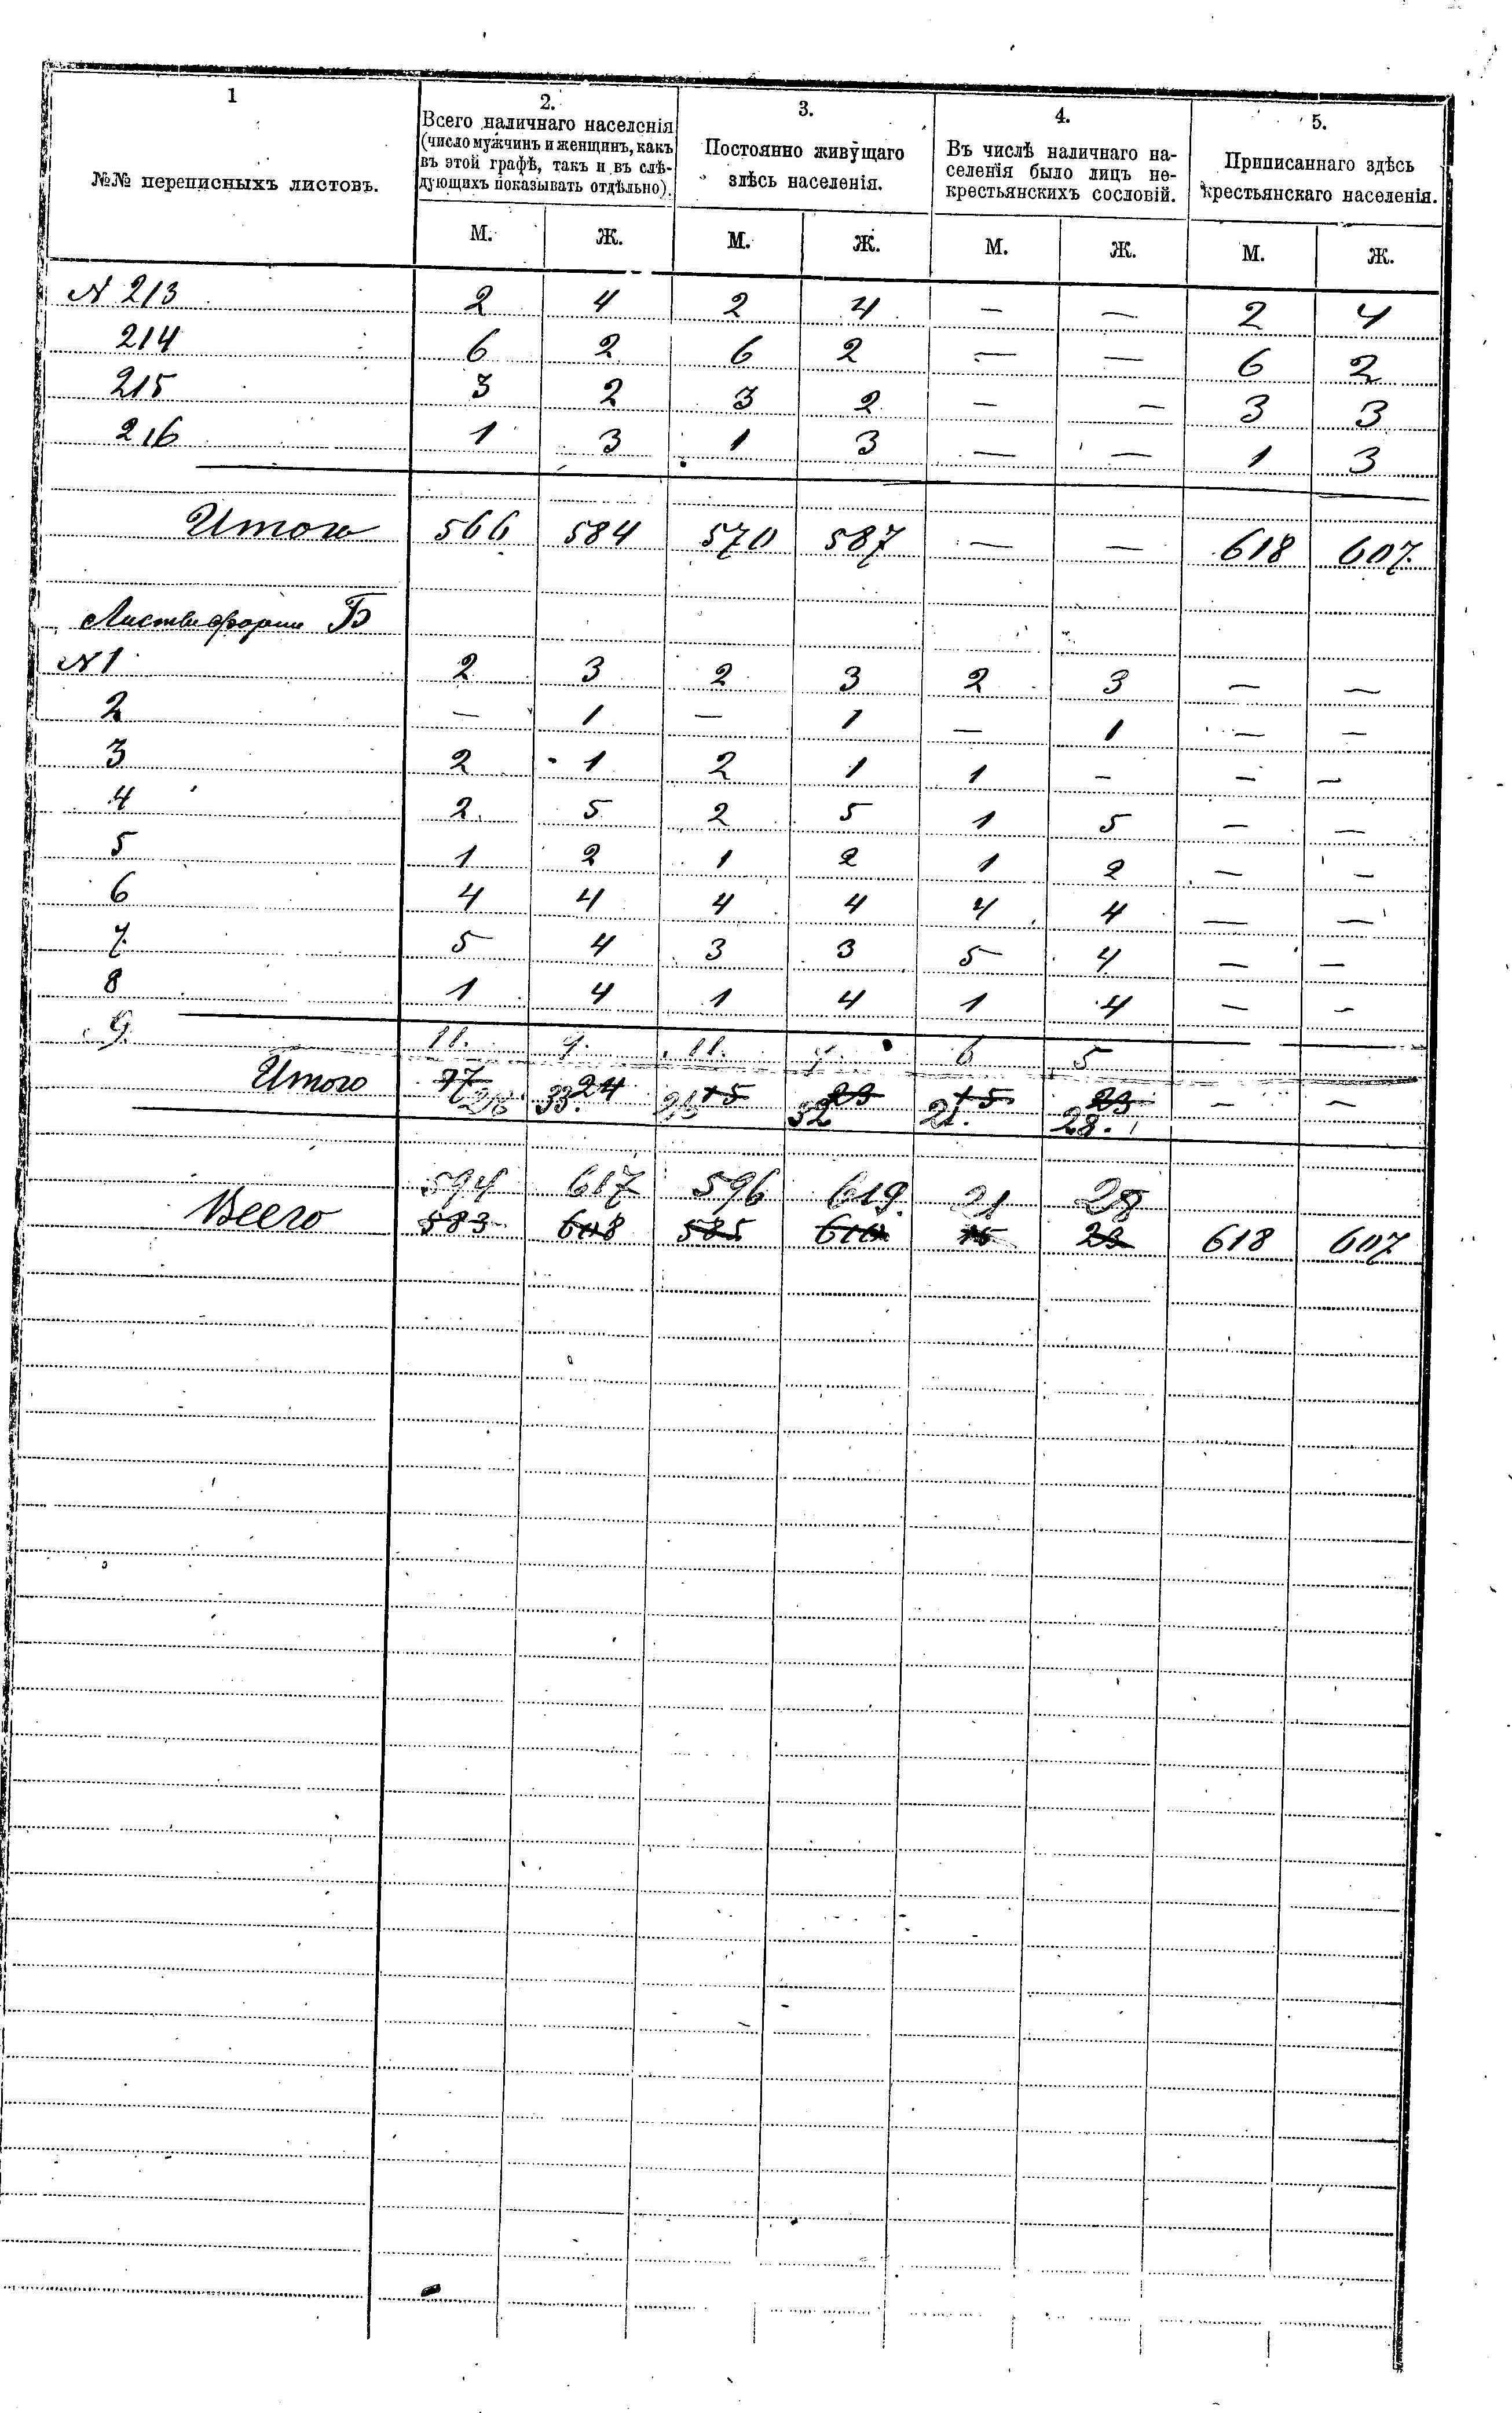 1
№№ переписныхъ листовъ.
2.
Всего наличнаго населенія
(число мужчинъ и женщинъ, какъ
въ этой графѣ, такъ и въ слѣ-
дующихъ показывать отдѣльно).
3.
Постоянно живущаго
здѣсь населенія.
4.
Въ числѣ наличнаго на-
селенія было лицъ не-
крестьянскихъ сословій.
5.
Приписаннаго здѣсь
крестьянскаго населенія.
М. Ж. М. Ж. М. Ж. М. Ж.
№ 213 2 4 2 4 — — 2 4
214 6 2 6 2 — — 6 2
215 3 2 3 2 — — 3 3
216 1 3 1 3 — — 1 3
Итого 566 584 570 587 — — 618 607
Листы формы Б
№ 1 2 3 2 3 2 3 — —
2 — 1 — 1 — 1 — —
3 2 1 2 1 1 — — —
4 2 5 2 5 1 5 — —
5 1 2 1 2 1 2 — —
6 4 4 4 4 4 4 — —
7 5 4 3 3 5 4 — —
8 1 4 1 4 1 4 — —
9. 11. 9. 11. 9. 6 5
Итого 17 24 15 23 15 23 — —
28 33. 26 32 21. 28.
594 617 596 619. 21 28
Всего 583 608 585 610 15 23 618 607